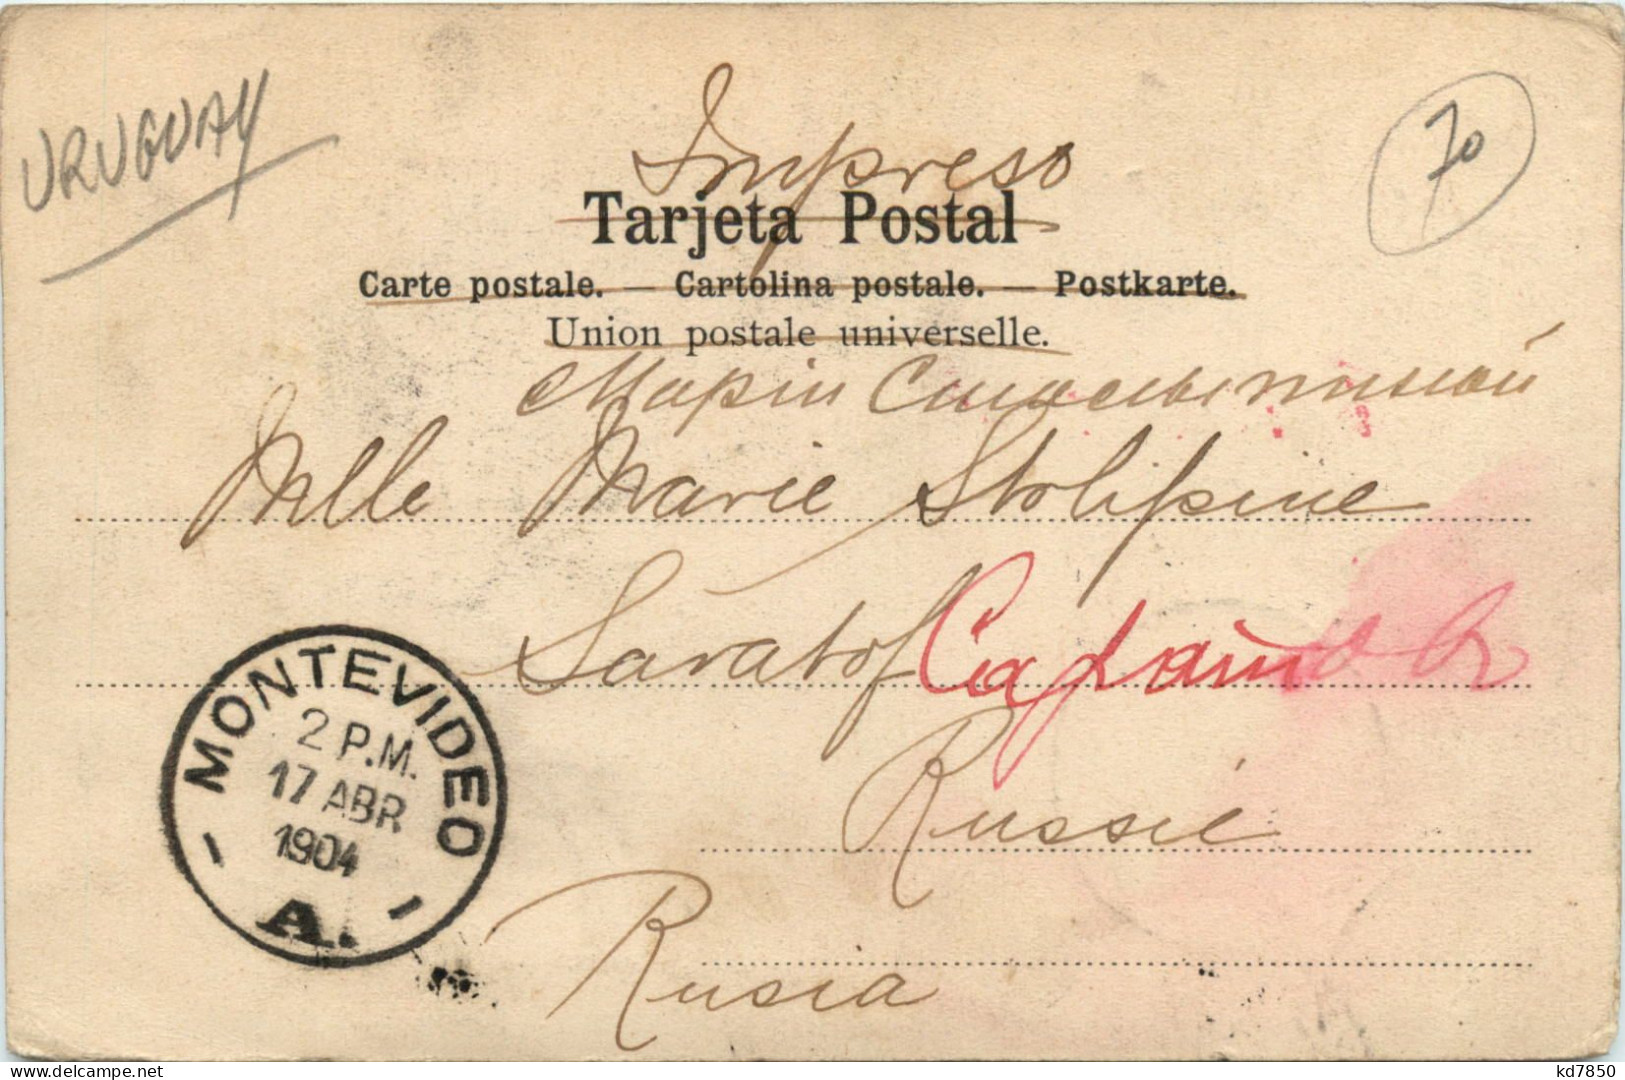 URUGUAY
70
Impreso
Tarjeta Postal
Carte postale. — Cartolina postale. — Postkarte.
Union postale universelle.
Маріи
Mlle Marie Stolipine
Saratof Саратовъ
Russie
Rusia
MONTEVIDEO
2 P.M.
17 ABR
1904
A.
kd7850